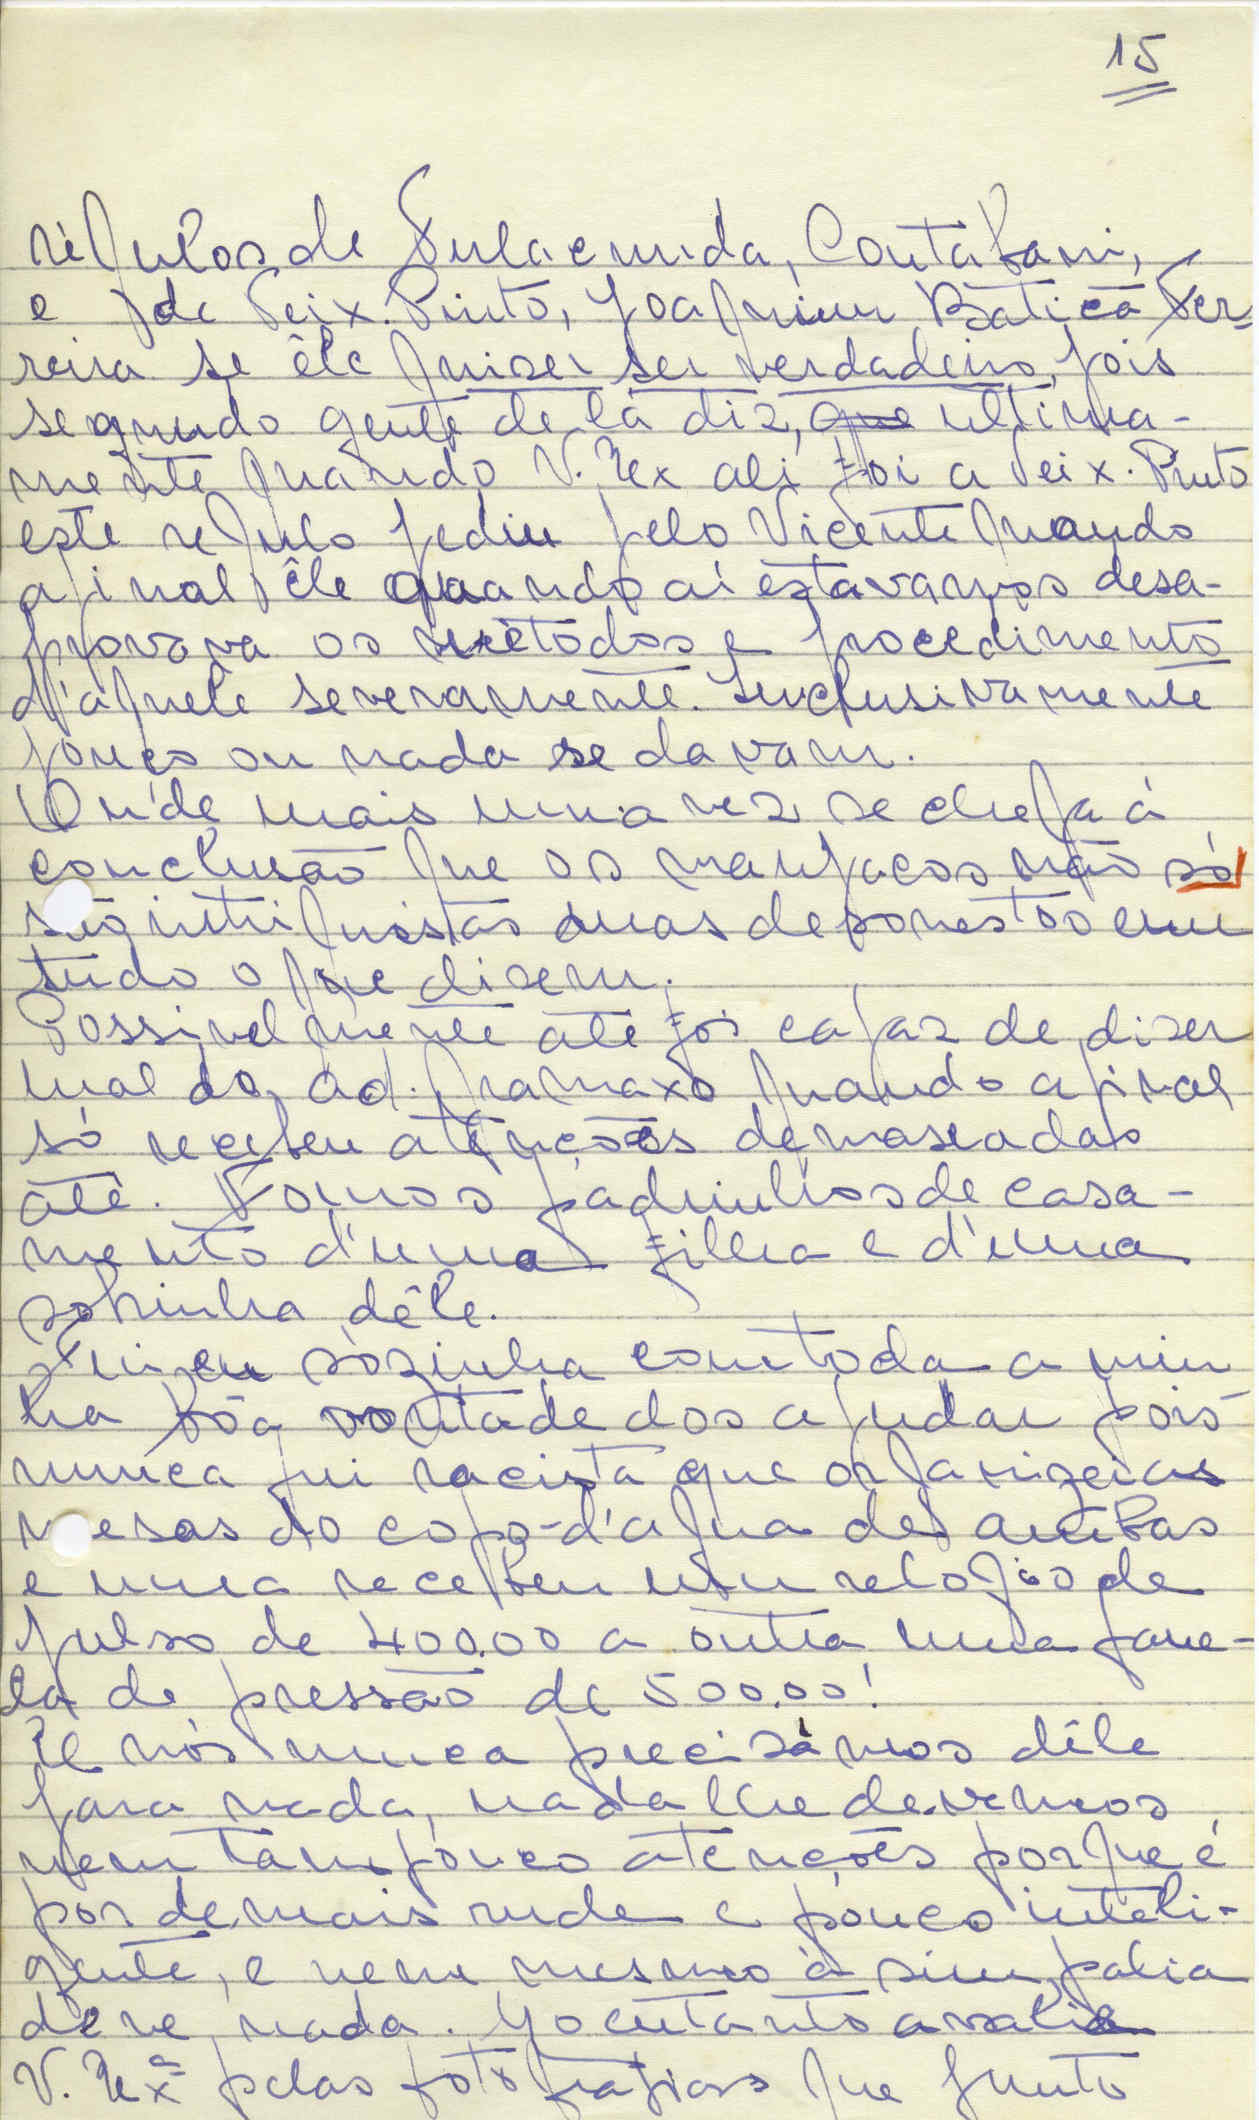 15
régulos de Fulacunda, Contabani,
e de Teix. Pinto, Joaquim Baticã Fer-
reira se êle quizer ser verdadeiro, pois
segundo gente de lá diz, que ultima-
mente quando V. Ex ali foi a Teix. Pinto
este regulo pediu pelo Vicente quando
afinal êle quando aí estavamos desa-
provava os métodos e procedimento
d'aquele severamente. Inclusivamente
pouco ou nada se davam.
Onde mais uma vez se chega á
conclusão que os manjacos não só
são intriguistas mas desonestos em
tudo o que dizem.
Possivelmente até foi capaz de dizer
mal do ad. quando afinal
só recebeu atenções demaseadas
até. Fomos padrinhos de casa-
mento d'uma filha e d'uma
sobrinha dêle.
Fui eu sòzinha com toda a min
ha bôa vontade dos ajudar pois
nunca fui racista que organizei as
mesas do copo-d'agua de ambas
e uma recebeu um relogio de
pulso de 400.00 a outra uma pane-
la de pressão de 500.00!
E nós nunca precisámos dêle
para nada, nada lhe devemos
nem tampouco atenções porque é
por demais rude e pouco inteli-
gente, e nem mesmo á simpatia
deve nada. No entanto avalie
V. Exª pelas fotografias que junto